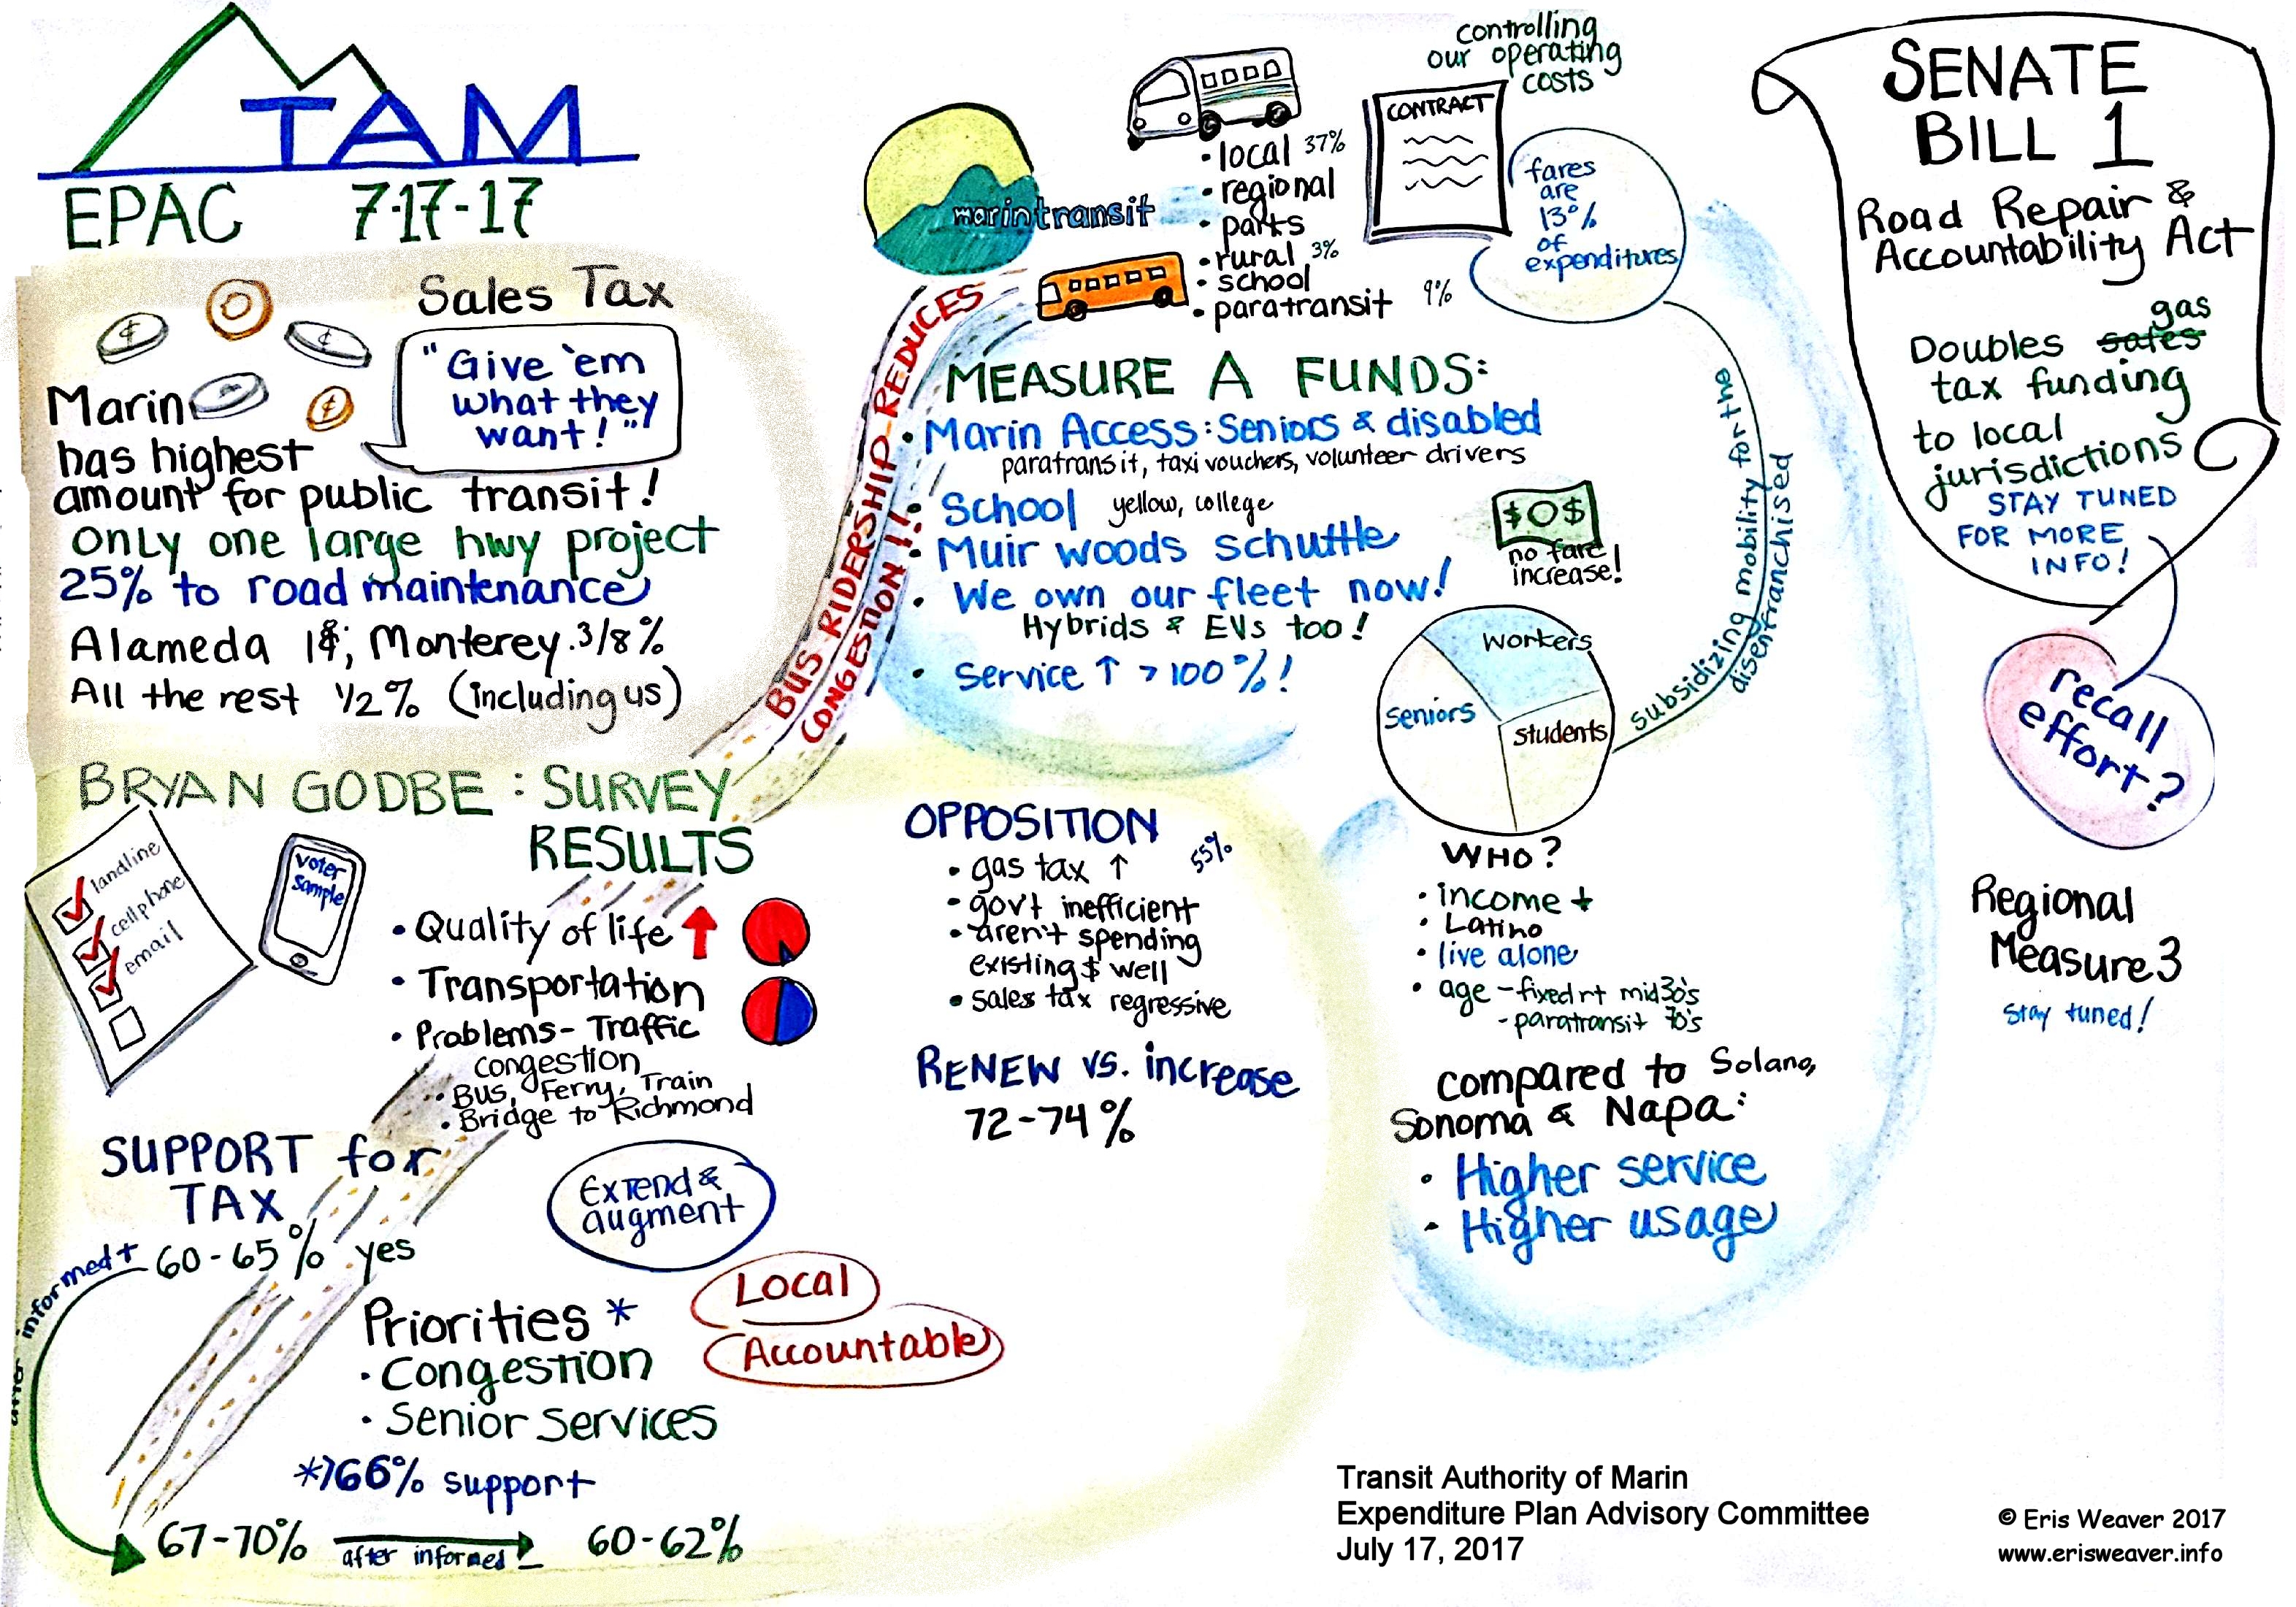 TAM
EPAC 7-17-17
Sales Tax
"Give 'em
what they
want!"
Marin
has highest
amount for public transit!
only one large hwy project
25% to road maintenance
Alameda 1¢; Monterey .3/8%
All the rest 1/2% (including us)
BRYAN GODBE: SURVEY
RESULTS
landline
cellphone
email
voter
sample
• Quality of life
• Transportation
• Problems - Traffic
congestion
• Bus, Ferry, Train
• Bridge to Richmond
SUPPORT for
TAX
informed +
60-65% yes
Extend &
augment
Local
Accountable
Priorities *
• Congestion
• Senior Services
*>66% support
67-70%
after informed -
60-62%
OPPOSITION
55%
• gas tax ↑
• gov't inefficient
• aren't spending
existing $ well
• sales tax regressive
RENEW vs. increase
72-74%
BUS RIDERSHIP REDUCES
CONGESTION!!
marintransit
• local 37%
• regional
• parks
• rural 3%
• school
• paratransit 9%
controlling
our operating
costs
CONTRACT
fares
are
13%
of
expenditures
MEASURE A FUNDS:
• Marin Access: Seniors & disabled
paratransit, taxi vouchers, volunteer drivers
• School yellow, college
• Muir woods schuttle
• We own our fleet now!
Hybrids & EVs too!
• Service ↑ >100%!
$0$
no fare
increase!
workers
seniors
students
subsidizing mobility for the
disenfranchised
WHO?
• income ↓
• Latino
• live alone
• age - fixed rt mid 30's
- paratransit 70's
compared to Solano,
Sonoma & Napa:
• Higher service
• Higher usage
SENATE
BILL 1
Road Repair &
Accountability Act
gas
Doubles sales
tax funding
to local
jurisdictions
STAY TUNED
FOR MORE
INFO!
recall
effort?
Regional
Measure 3
stay tuned!
Transit Authority of Marin
Expenditure Plan Advisory Committee
July 17, 2017
© Eris Weaver 2017
www.erisweaver.info